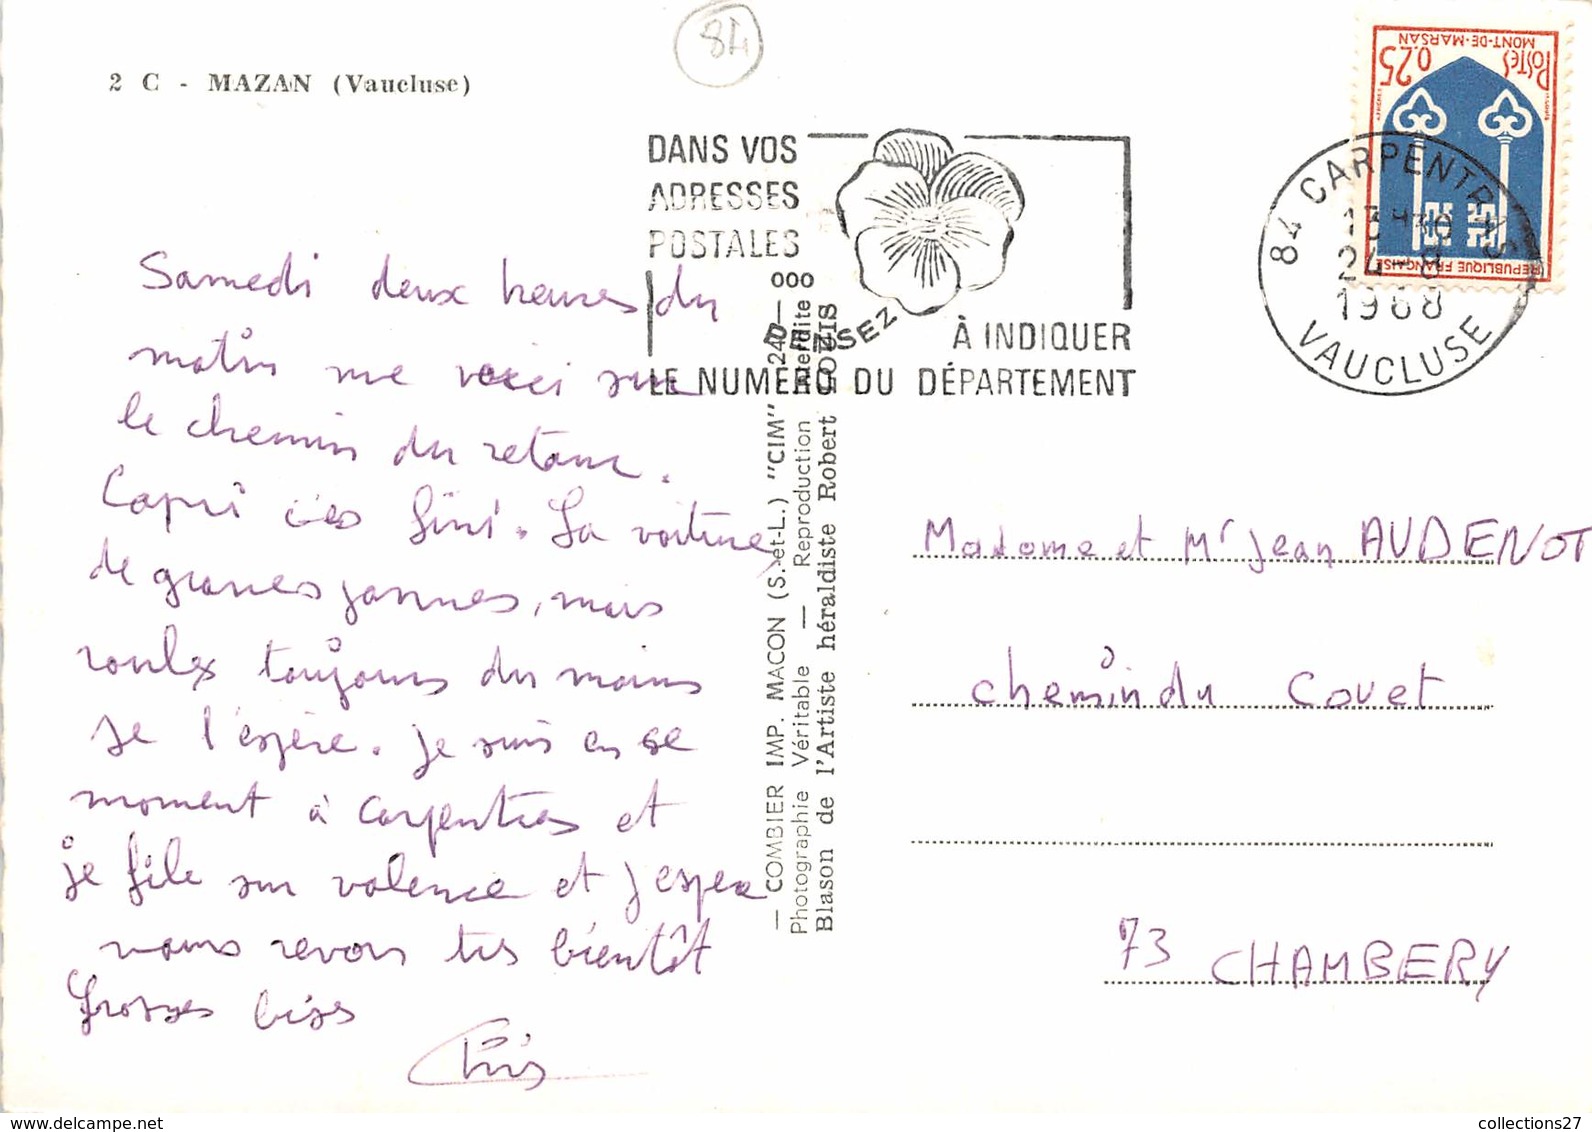 84
2 C - MAZAN (Vaucluse)
DANS VOS
ADRESSES
POSTALES
000
PENSEZ
À INDIQUER
LE NUMERO DU DÉPARTEMENT
POSTES
0,25
MONT-DE-MARSAN
REPUBLIQUE FRANÇAISE
84 CARPENTRAS
13H30
24-8
1968
VAUCLUSE
Samedi deux heures du
matin me voici sur
le chemin du retour.
Capri c'es fini. La voiture
de graves pannes, mais
roules toujours du moins
je l'espère. Je suis en se
moment à Carpentras et
je file sur valence et J'espere
vous revoir tres bientôt
Grosses bises
Chris
— COMBIER IMP. MACON (S.-et-L.) "CIM"
Photographie Véritable — Reproduction interdite
Blason de l'Artiste héraldiste Robert LOUIS
Madame et Mr Jean AUDENOT
Chemin du Covet
73 CHAMBERY
www.delcampe.net
collections27